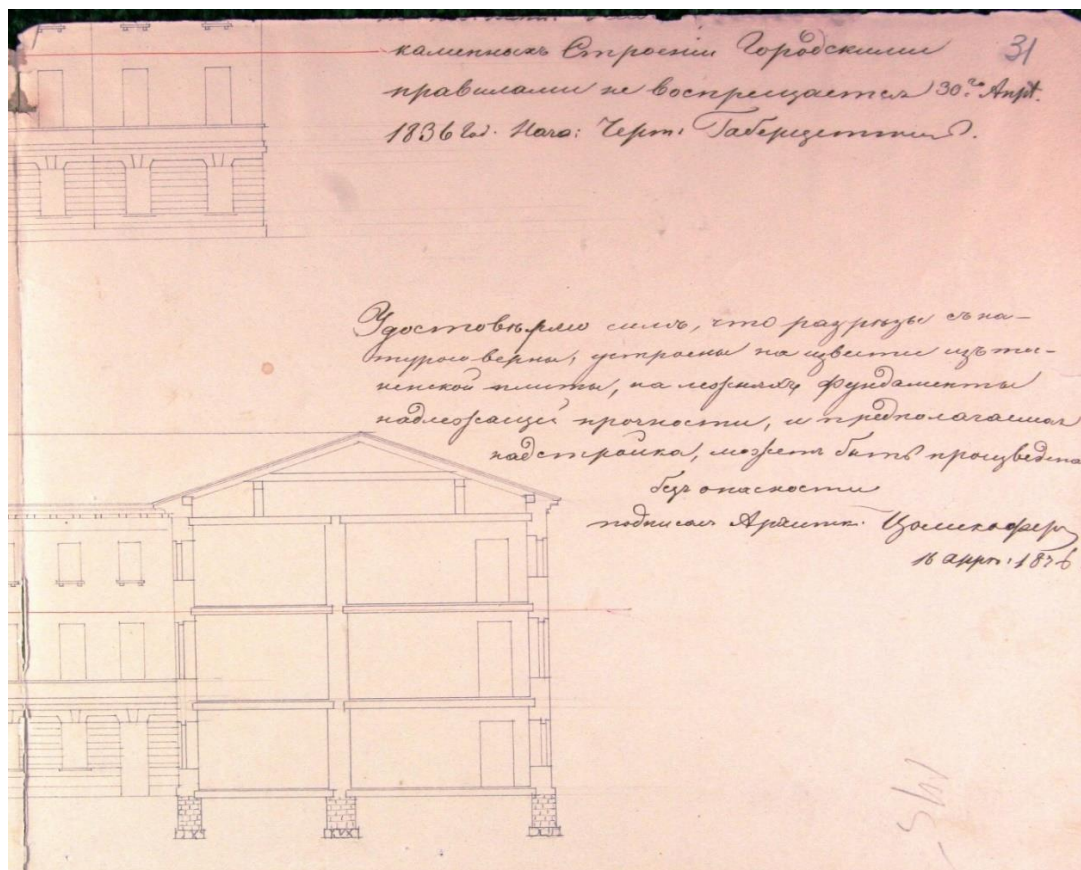 31
каменныхъ Строеніи Городскими
правилами не воспрещается 30го Апрѣ.
1836 год. Нача: Черт:
Удостовѣряю симъ, что разрѣзы съ на-
турою верны, устроены на извести изъ ти-
ненской плиты, на лежняхъ фундаменты
надлежащей прочности, и предполагаемая
надстройка, можетъ быть произведена
безъ опасности
подписалъ Архитек.
16 апрѣ: 1836